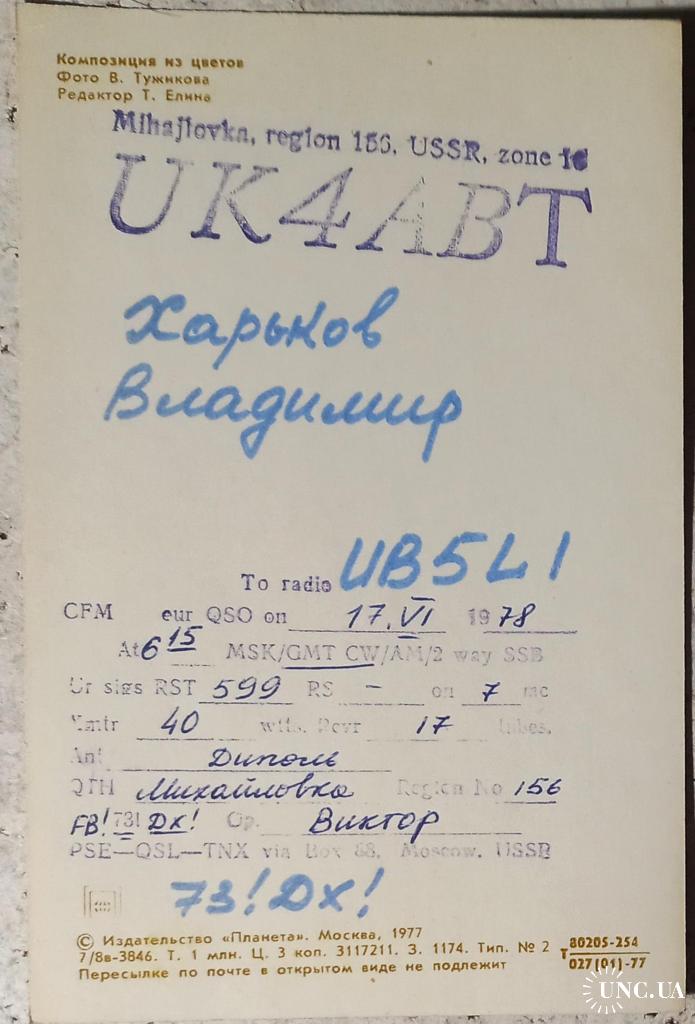 Композиция из цветов
Фото В. Тужикова
Редактор Т. Елина
Mihajlovka, region 156, USSR, zone 16
UK4ABT
Харьков
Владимир
To radio UB5LI
CFM eur QSO on 17.VI 1978
At 6 15 MSK/GMT CW/AM/2 way SSB
Ur sigs RST 599 RS - on 7 mc
Xmtr 40 wtts. Rcvr 17 tubes.
Ant Диполь
QTH Михайловка Region No 156
FB! 73! DX! Op. Виктор
PSE—QSL—TNX via Box 88, Moscow, USSR
73! DX!
© Издательство «Планета». Москва, 1977
7/8в-3846. Т. 1 млн. Ц. 3 коп. 3117211. З. 1174. Тип. № 2
Пересылке по почте в открытом виде не подлежит
Т 80205-254
027(01)-77
UNC.UA